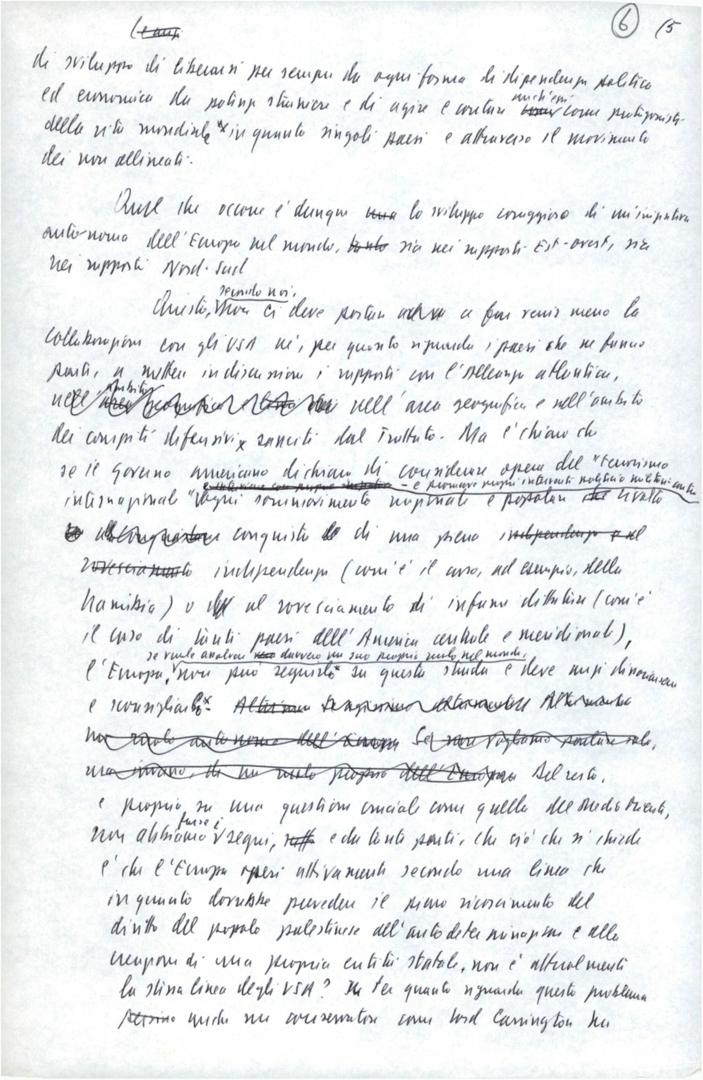 6 15
di sviluppo di liberarsi per sempre da ogni forma di dipendenza politica
ed economica da potenze straniere e di agire e contare anch'essi come protagonisti
della vita mondiale in quanto singoli paesi e attraverso il movimento
dei non allineati.
Quel che occorre è dunque una lo sviluppo coraggioso di un'iniziativa
autonoma dell'Europa nel mondo, tanto sia nei rapporti Est-ovest, sia
nei rapporti Nord-Sud
secondo noi,
Questo, non ci deve portare a far venir meno la
collaborazione con gli USA né, per quanto riguarda i paesi che ne fanno
parte, a mettere in discussione i rapporti con l'alleanza atlantica,
nell'area geografica e nell'ambito
dei compiti difensivi sanciti dal Trattato. Ma è chiaro che
se il governo americano dichiara di considerare opera del "terrorismo
e promuove interventi militari contro
internazionale" ogni sommovimento nazionale e popolare rivolto
conquista di una piena indipendenza e al
rovesciamento indipendenza (com'è il caso, ad esempio, della
Namibia) o al rovesciamento di infami dittature (com'è
il caso di tanti paesi dell'America centrale e meridionale),
se vuole assolvere davvero un suo proprio ruolo nel mondo,
l'Europa, non può seguirlo su questa strada e deve anzi
e sconsigliarlo.
un ruolo autonomo dell'Europa Se non vogliamo parlare solo,
ma invano, di un ruolo proprio dell'Europa Del resto,
è proprio su una questione cruciale come quella del Medio Oriente,
forse i
non abbiamo segni, e da tante parti, che ciò che si chiede
è che l'Europa operi attivamente secondo una linea che
in quanto dovrebbe prevedere il pieno riconoscimento del
diritto del popolo palestinese all'autodeterminazione e alla
creazione di una propria entità statale, non è attualmente
la stessa linea degli USA? Per quanto riguarda questo problema
persino anche un conservatore come Lord Carrington ha